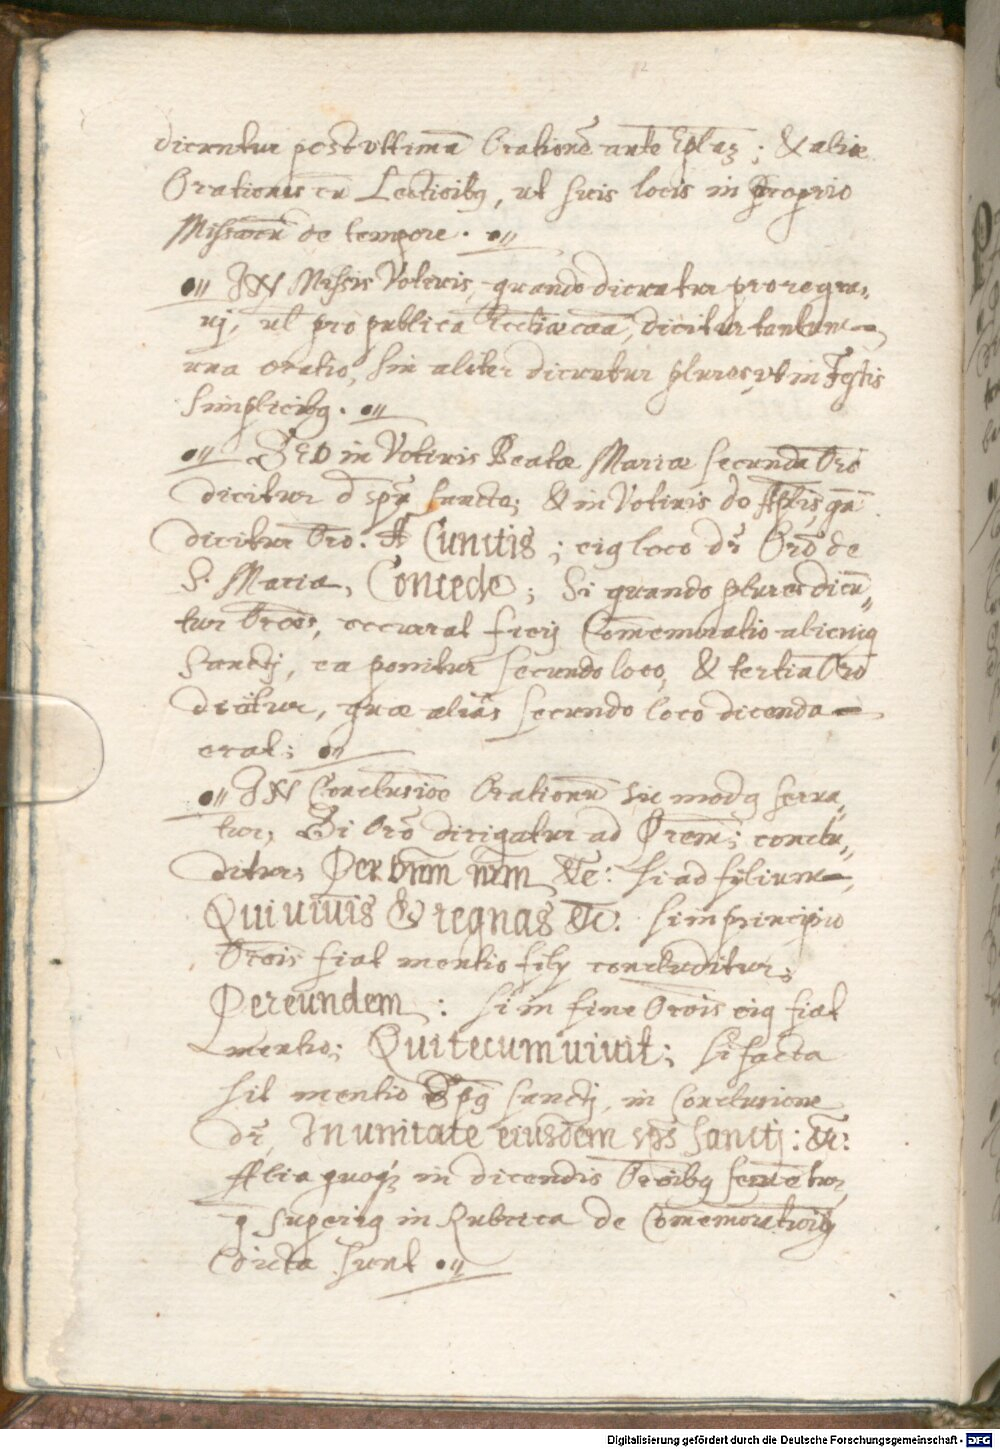 dicuntur post vltimã Orationẽ ante Eplaz; & aliæ
Orationes cũ Lectioibꝰ, ut suis locis in Proprio
Missarũ de tempore.
IN Missis Votiuis, quando dicuntur pro re gra„
uj, ul pro publica Ecclīæ caã, dicitur tantum
una oratio, sin aliter dicuntur plures, vt in Festis
Simplicibꝰ.
SED in Votiuis Beatæ Mariæ secunda Orõ
dicitur d Spũ Sancto; & in Votiuis de Aplis, 
dicitur Orõ. A Cunctis; eiꝰ loco dr̃ Orõ de
S. Maria, Concede; Si quando plures dicũ„
tur Orões, occurrat fierj Comemoratio alicuiꝰ
Sanctj, ea ponitur secundo loco, & tertia Orõ
dicitur, quæ aliàs secundo loco dicenda
erat;
IN Conclusioẽ Orationũ hic modꝰ serua„
tur, Si Orõ dirigatur ad Prem̃; conclu„
ditur; Per Dñm nr̃m &c: si ad filium
Qui uiuis & regnas &c: si in principio
Orõis fiat mentio filij concluditur;
Per eundem: si in fine Orõis eiꝰ fiat
mentio; Qui tecum uiuit; si facta
sit mentio Spꝰ Sanctj, in Conclusione
dr̃, In unitate eiusdem sp̃s Sanctj: &c:
Alia quoqꝫ in dicendis Orõibꝰ seruẽtur,
q̃ superiꝰ in Rubrica de Comemorationibꝰ
dicta sunt
Digitalisierung gefördert durch die Deutsche Forschungsgemeinschaft - DFG